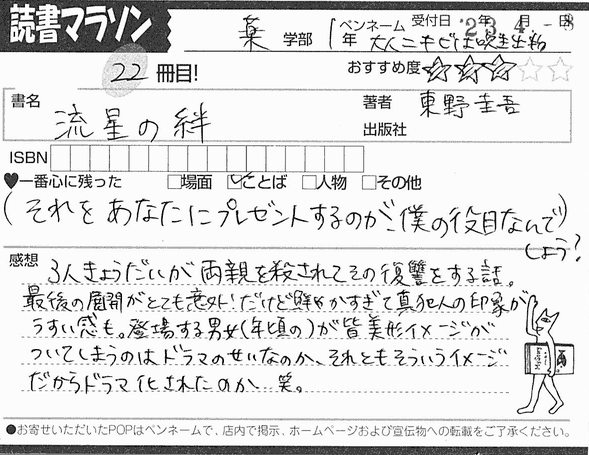 読書マラソン
薬 学部 1年 ペンネーム 大人ニキビは吹き出物
受付日 '23年 4月 -8日
22 冊目! おすすめ度 ★★★☆☆
書名 流星の絆
著者 東野圭吾
出版社
ISBN
♥一番心に残った □場面 ☑ことば □人物 □その他
(それをあなたにプレゼントするのが、僕の役目なんで)
しょう?
感想 3人きょうだいが両親を殺されてその復讐をする話。
最後の展開がとても意外!だけど鮮やかすぎて真犯人の印象が
うすい感も。登場する男女(年頃の)が皆美形イメージが
ついてしまうのはドラマのせいなのか、それともそういうイメージ
だからドラマ化されたのか 笑。
●お寄せいただいたPOPはペンネームで、店内で掲示、ホームページおよび宣伝物への転載をご了承ください。